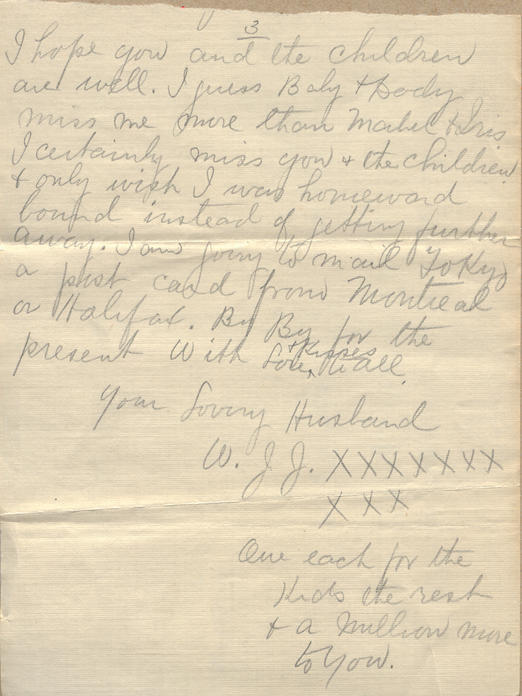 3
I hope you and the children
are well. I guess Baby + Dody
miss me more than Mabel + Iris
I certainly miss you + the children
+ only wish I was homeward
bound instead of getting further
away. I am going to mail
a post card from Montreal
or Halifax. By By for the
present With Love + Kisses to all
Your Loving Husband
W. J. J. XXXXXXX
XXX
One each for the
Kids the rest
+ a Million more
to You.